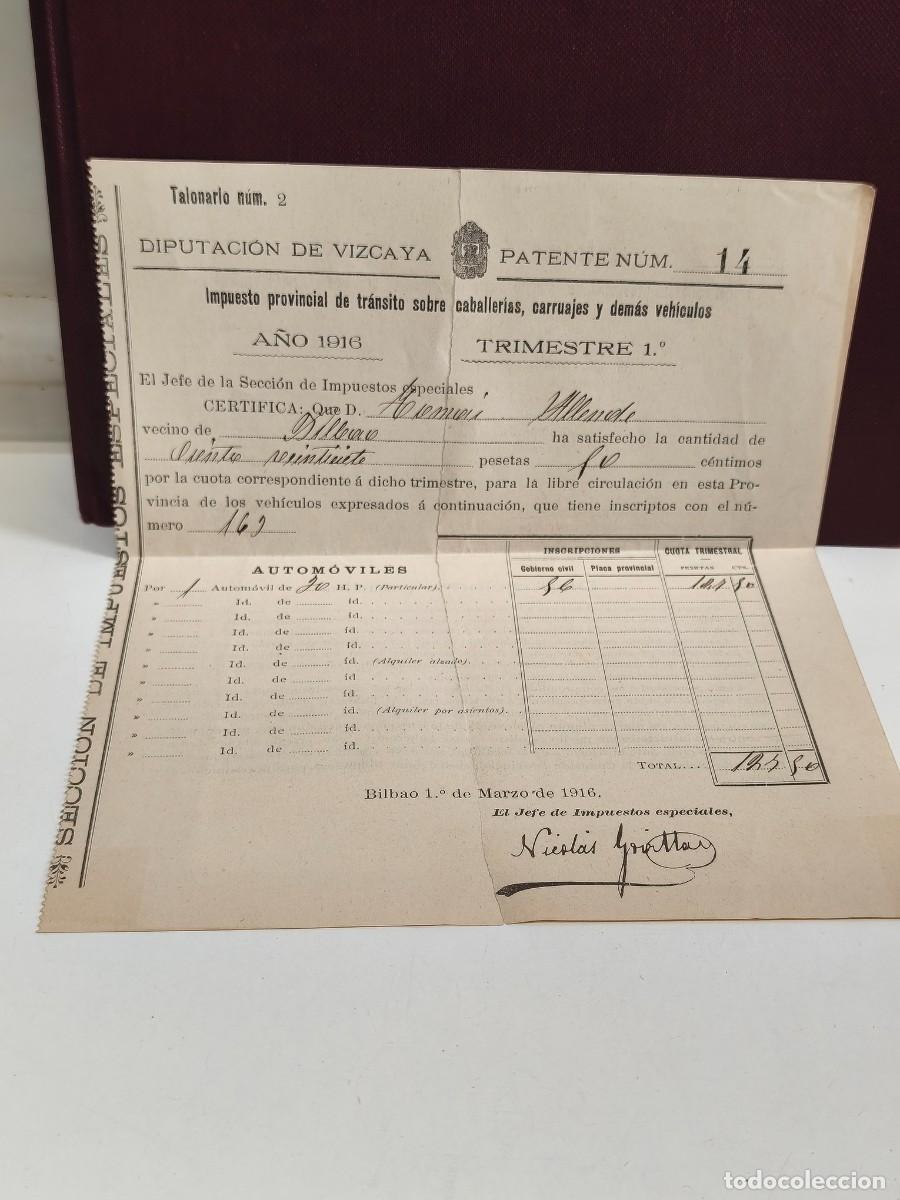 Talonario núm. 2
DIPUTACIÓN DE VIZCAYA PATENTE NÚM. 14
Impuesto provincial de tránsito sobre caballerías, carruajes y demás vehículos
AÑO 1916 TRIMESTRE 1.º
El Jefe de la Sección de Impuestos especiales
CERTIFICA: Que D. Allende
vecino de Bilbao ha satisfecho la cantidad de
Ciento veintisiete pesetas 50 céntimos
por la cuota correspondiente á dicho trimestre, para la libre circulación en esta Pro-
vincia de los vehículos expresados á continuación, que tiene inscriptos con el nú-
mero 163
INSCRIPCIONES CUOTA TRIMESTRAL
AUTOMÓVILES Gobierno civil Placa provincial PESETAS CTS.
Por 1 Automóvil de 20 H. P. (Particular). 86 127 50
» Id. de id.
» Id. de id.
» Id. de id.
» Id. de id.
» Id. de id. (Alquiler alzado).
» Id. de id.
» Id. de id.
» Id. de id. (Alquiler por asientos).
» Id. de id.
» Id. de id.
TOTAL... 127 50
Bilbao 1.º de Marzo de 1916.
El Jefe de Impuestos especiales,
Nicolás
SECCIÓN DE IMPUESTOS ESPECIALES
todocoleccion